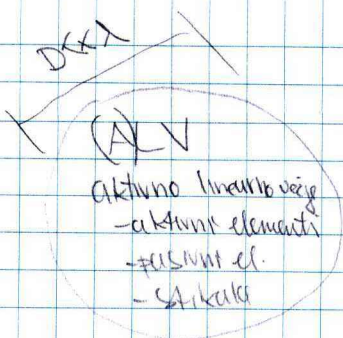 D<<λ
(A)LV
aktivno linearno vezje
-aktivni elementi
-pasivni el.
- stikala